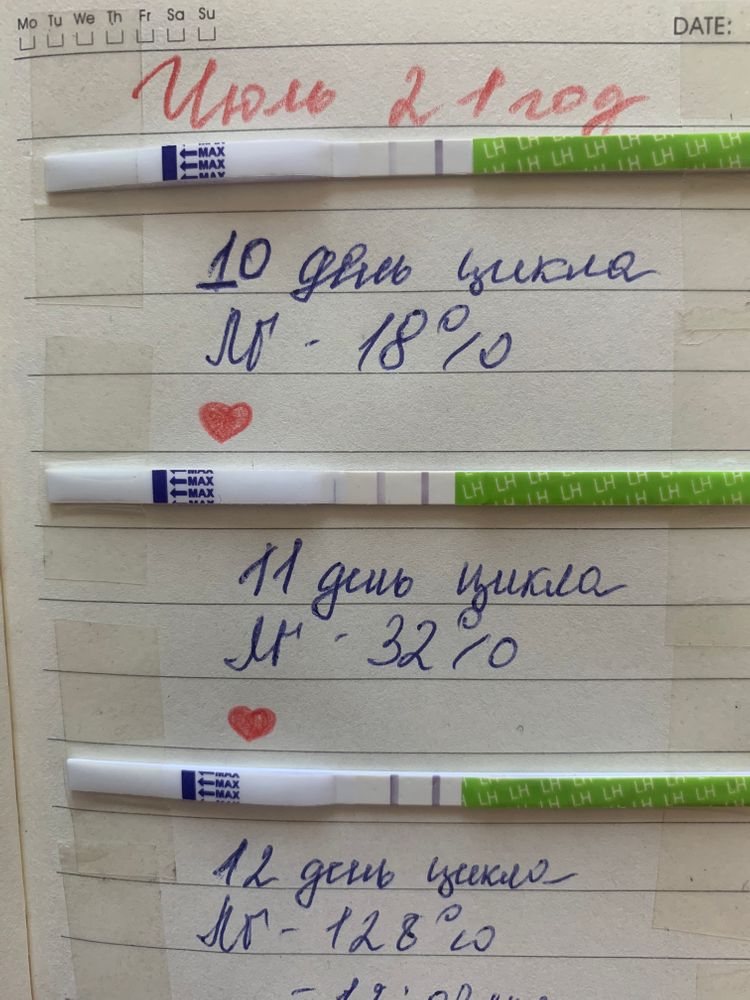 Mo Tu We Th Fr Sa Su
DATE:
Июль 21 год
MAX
MAX
MAX
LH LH LH LH LH LH
LH LH LH LH LH
10 день цикла
ЛГ - 18%
MAX
MAX
MAX
LH LH LH LH LH
LH LH LH LH LH LH
11 день цикла
ЛГ - 32%
MAX
MAX
MAX
LH LH LH LH LH LH
LH LH LH LH LH LH
12 день цикла
ЛГ - 128%